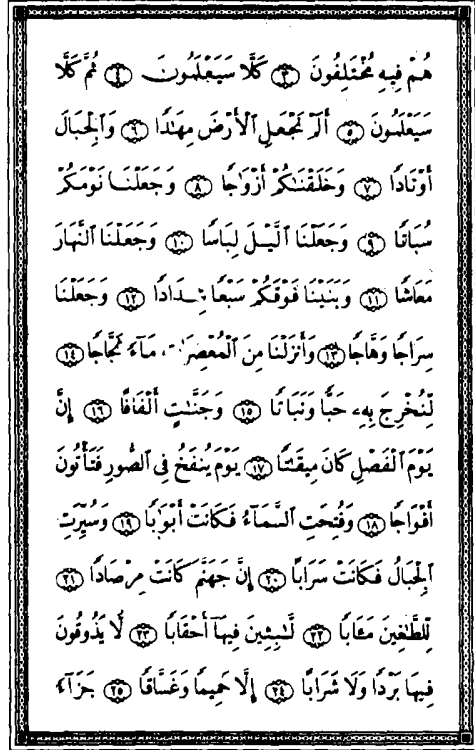 هُمْ فِيهِ مُخْتَلِفُونَ ٣ كَلَّا سَيَعْلَمُونَ ٤ ثُمَّ كَلَّا
سَيَعْلَمُونَ ٥ أَلَمْ نَجْعَلِ ٱلْأَرْضَ مِهَٰدًا ٦ وَٱلْجِبَالَ
أَوْتَادًا ٧ وَخَلَقْنَٰكُمْ أَزْوَٰجًا ٨ وَجَعَلْنَا نَوْمَكُمْ
سُبَاتًا ٩ وَجَعَلْنَا ٱلَّيْلَ لِبَاسًا ١٠ وَجَعَلْنَا ٱلنَّهَارَ
مَعَاشًا ١١ وَبَنَيْنَا فَوْقَكُمْ سَبْعًا شِدَادًا ١٢ وَجَعَلْنَا
سِرَاجًا وَهَّاجًا ١٣ وَأَنزَلْنَا مِنَ ٱلْمُعْصِرَٰتِ مَآءً ثَجَّاجًا ١٤
لِّنُخْرِجَ بِهِۦ حَبًّا وَنَبَاتًا ١٥ وَجَنَّٰتٍ أَلْفَافًا ١٦ إِنَّ
يَوْمَ ٱلْفَصْلِ كَانَ مِيقَٰتًا ١٧ يَوْمَ يُنفَخُ فِى ٱلصُّورِ فَتَأْتُونَ
أَفْوَاجًا ١٨ وَفُتِحَتِ ٱلسَّمَآءُ فَكَانَتْ أَبْوَٰبًا ١٩ وَسُيِّرَتِ
ٱلْجِبَالُ فَكَانَتْ سَرَابًا ٢٠ إِنَّ جَهَنَّمَ كَانَتْ مِرْصَادًا ٢١
لِّلطَّٰغِينَ مَـَٔابًا ٢٢ لَّٰبِثِينَ فِيهَآ أَحْقَابًا ٢٣ لَّا يَذُوقُونَ
فِيهَا بَرْدًا وَلَا شَرَابًا ٢٤ إِلَّا حَمِيمًا وَغَسَّاقًا ٢٥ جَزَآءً